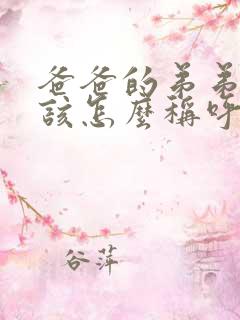 爸爸的弟弟
該怎麼稱呼
谷萍